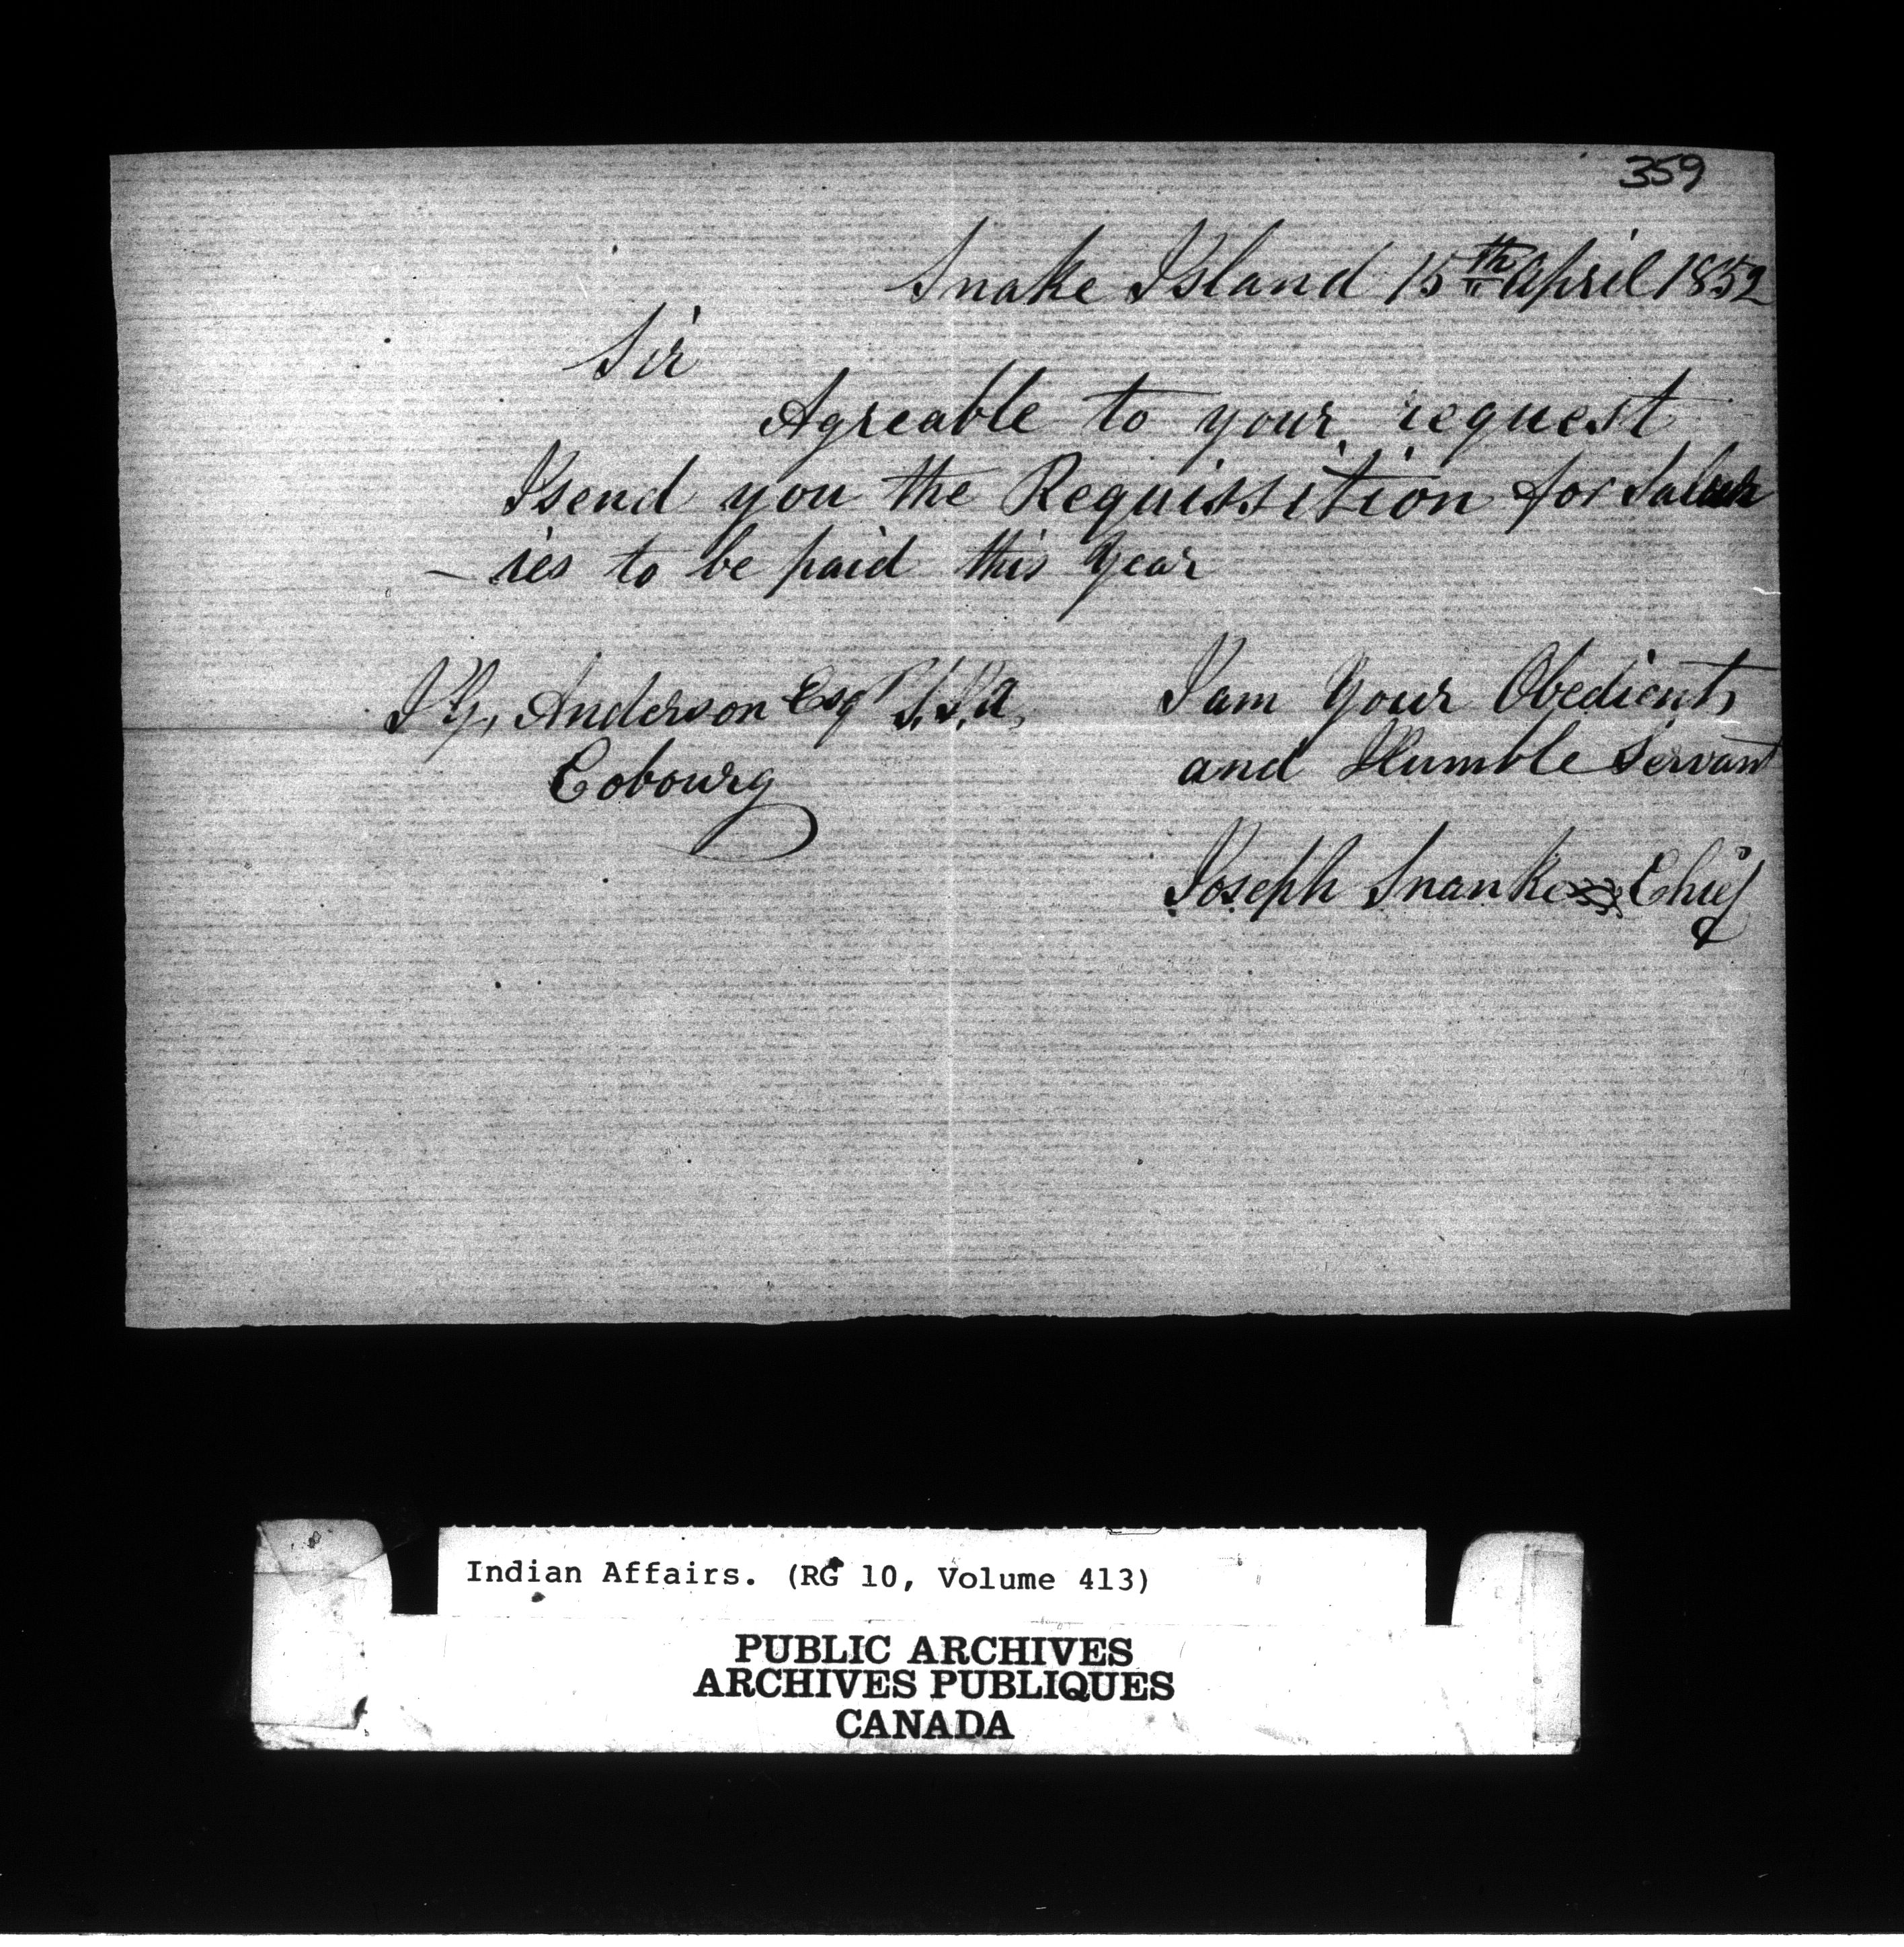 359
Snake Island 15th April 1852
Sir
Agreable to your request
I send you the Requissition for Sala
- ries to be paid this Year
T G, Anderson Esqr S.I.A,
Cobourg
I am Your Obedient,
and Humble Servant
Joseph Snanke Chief
Indian Affairs. (RG 10, Volume 413)
PUBLIC ARCHIVES
ARCHIVES PUBLIQUES
CANADA